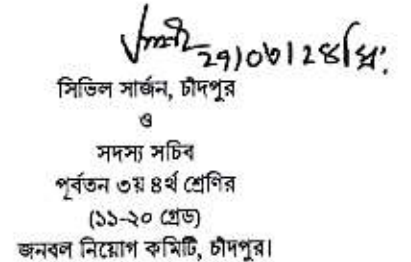 ২৭/০৩/২৪খ্রি:
সিভিল সার্জন, চাঁদপুর
ও
সদস্য সচিব
পূর্বতন ৩য় ৪র্থ শ্রেণির
(১১-২০ গ্রেড)
জনবল নিয়োগ কমিটি, চাঁদপুর।